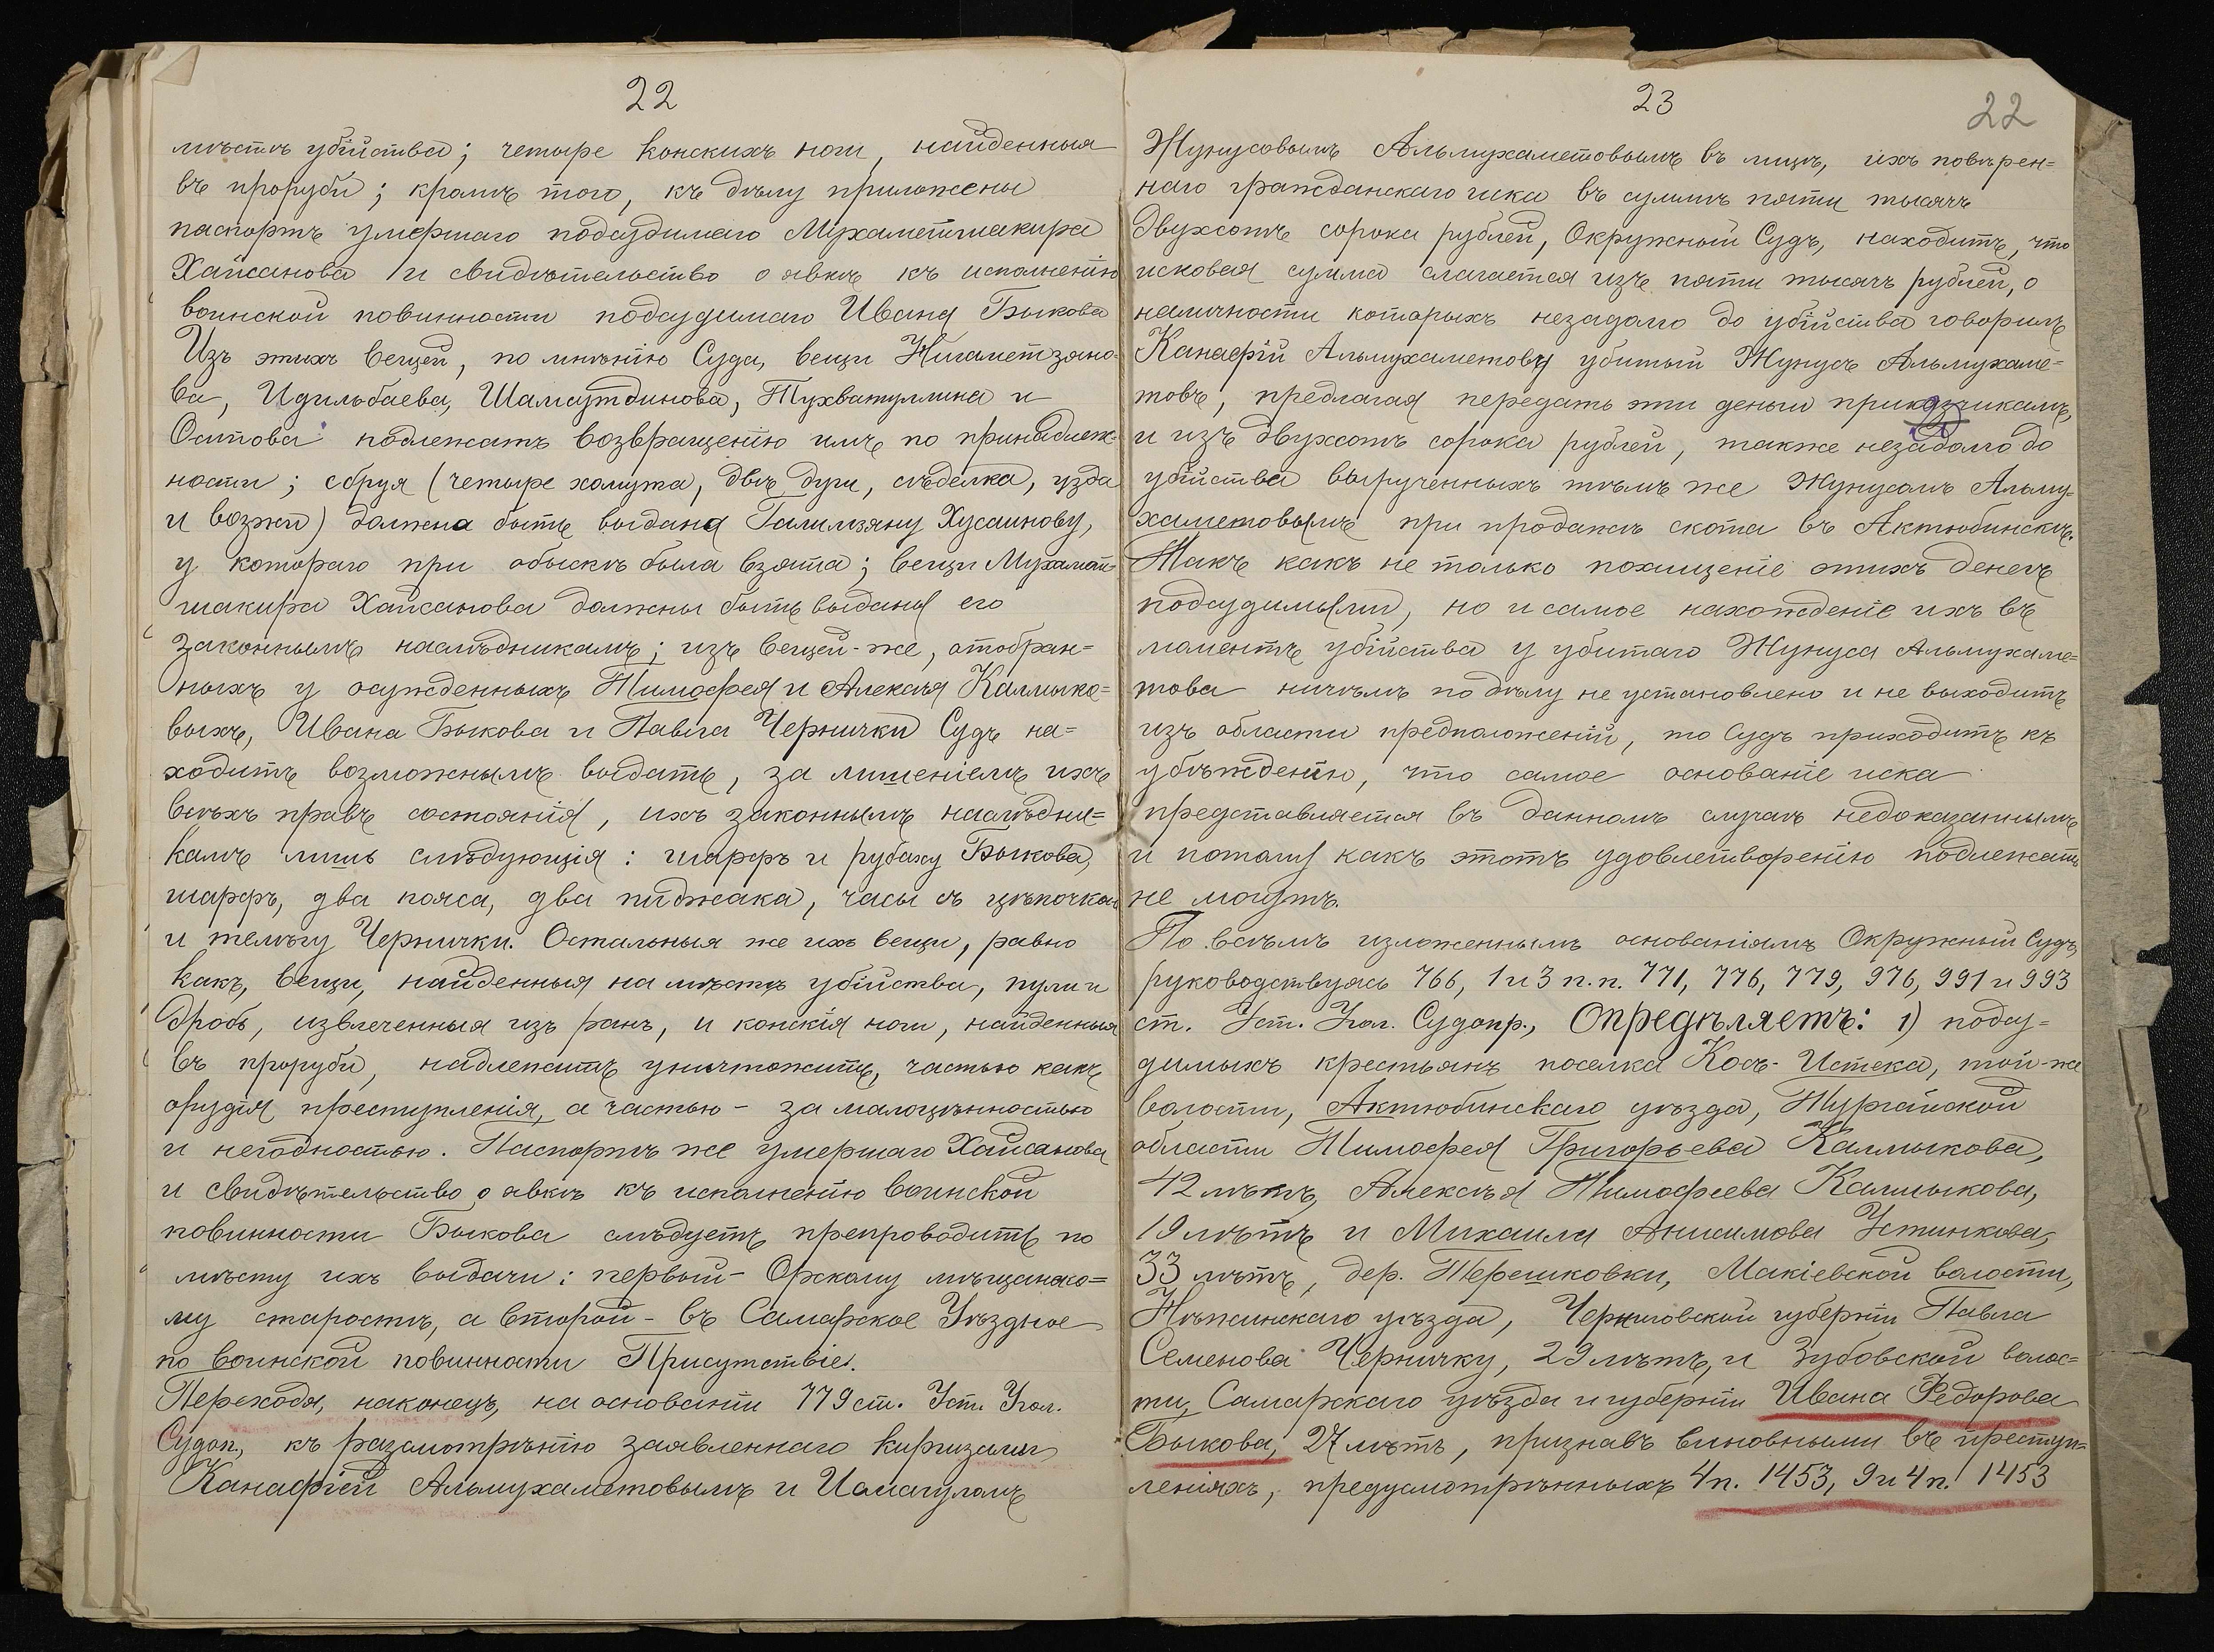 22
мѣстѣ убійства; четыре конскихъ ноги, найденныя
въ проруби; кромѣ того, къ дѣлу приложены
паспортъ умершаго подсудимаго Мухаметшакира
Хайсанова и свидѣтельство о явкѣ къ исполненію
воинской повинности подсудимаго Ивана Быкова
Изъ этихъ вещей, по мнѣнію Суда, вещи Нигаметзяно-
ва, Идильбаева, Шамаутдинова, Тухватуллина и
Осипова подлежатъ возвращенію имъ по принадлеж-
ности; сбруя (четыре хомута, двѣ дуги, сѣделка, узда
и возжи) должна быть выдана Галимзяну Хусаинову,
у котораго при обыскѣ была взята; вещи Мухамет-
шакира Хайсанова должны быть выданы его
законнымъ наслѣдникамъ; изъ вещей-же, отобран=
ныхъ у осужденныхъ Тимофея и Алексѣя Калмыко=
выхъ, Ивана Быкова и Павла Чернички Судъ на=
ходитъ возможнымъ выдать, за лишеніемъ ихъ
всѣхъ правъ состоянія, ихъ законнымъ наслѣдни=
камъ лишь слѣдующія: шарфъ и рубаху Быкова,
шарфъ, два пояса, два пиджака, часы съ цѣпочкой
и телѣгу Чернички. Остальныя же ихъ вещи, равно
какъ, вещи, найденныя на мѣстѣ убійства, пули и
дробь, извлеченныя изъ ранъ, и конскія ноги, найденныя
въ проруби, надлежитъ уничтожить, частью какъ
орудія преступленія, а частью - за малоцѣнностью
и негодностью. Паспортъ же умершаго Хайсанова
и свидѣтельство о явкѣ къ исполненію воинской
повинности Быкова слѣдуетъ препроводить по
мѣсту ихъ выдачи: первый - Орскому мѣщанско=
му старостѣ, а второй - въ Самарское Уѣздное
по воинской повинности Присутствіе.
Переходя, наконецъ, на основаніи 779 ст. Уст. Угол.
Судоп., къ разсмотрѣнію заявленнаго киргизами
Канафіей Альмухаметовымъ и Исмагуломъ
23
22
Жунусовымъ Альмухаметовымъ въ лицѣ, ихъ повѣрен=
наго гражданскаго иска въ суммѣ пяти тысячъ
двухсотъ сорока рублей, Окружный Судъ, находитъ, что
исковая сумма слагается изъ пяти тысячъ рублей, о
наличности которыхъ незадолго до убійства говорилъ
Канафій Альмухаметову убитый Жунусъ Альмухаме=
товъ, предлагая передать эти деньги приказчикамъ,
и изъ двухсотъ сорока рублей, также незадолго до
убійства вырученныхъ тѣмъ же Жунусомъ Альму-
хаметовымъ при продажѣ скота въ Актюбинскѣ.
Такъ какъ не только похищеніе этихъ денегъ
подсудимыми, но и самое нахожденіе ихъ въ
моментъ убійства у убитаго Жунуса Альмухаме=
това ничѣмъ по дѣлу не установлено и не выходитъ
изъ области предположеній, то Судъ приходитъ къ
убѣжденію, что самое основаніе иска
представляется въ данномъ случаѣ недоказаннымъ
и потому какъ этотъ удовлетворенію подлежать
не могутъ.
По всѣмъ изложеннымъ основаніямъ Окружный Судъ,
руководствуясь 766, 1 и 3 п.п. 771, 776, 779, 976, 991 и 993
ст. Уст. Угол. Судопр., Опредѣляетъ: 1) подсу=
димыхъ крестьянъ поселка Косъ-Истека, той-же
волости, Актюбинскаго уѣзда, Тургайской
области Тимофея Григорьева Калмыкова,
42 лѣтъ, Алексѣя Тимофеева Калмыкова,
19 лѣтъ и Михаила Анисимова Устинкова,
33 лѣтъ, дер. Терешковки, Макіевской волости,
Нѣжинскаго уѣзда, Черниговской губерніи Павла
Семенова Черничку, 29 лѣтъ, и Зубовской волос=
ти, Самарскаго уѣзда и губерніи Ивана Федорова
Быкова, 27 лѣтъ, признавъ виновными въ преступ=
леніяхъ, предусмотрѣнныхъ 4 п. 1453, 9 и 4 п. 1453